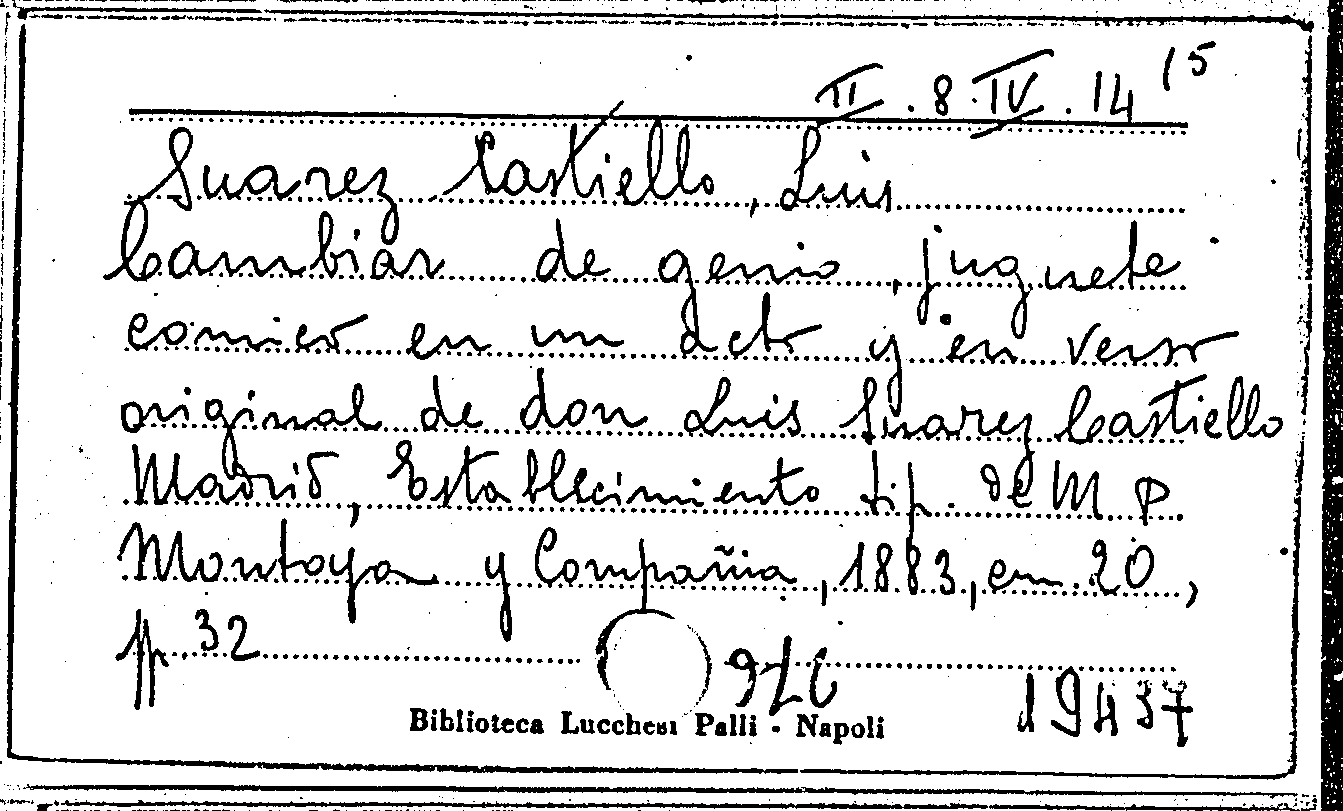 II . 8 . IV . 14 15
Suarez Castiello, Luis
Cambiar de genio, juguete
comico en un acto y en verso
original de don Luis Suarez Castiello
Madrid, Establecimiento tip. de M P
Montoya y Compañia, 1883, cm. 20,
pp. 32
19437
Biblioteca Lucchesi Palli - Napoli